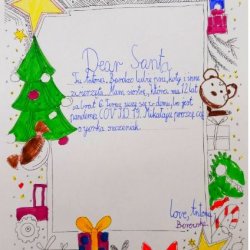 Dear Santa
Tu Antoni. Bardzo lubię psa, koty i inne
zwierzęta. Mam siostrę, która ma 12 lat
i a brat 6. Teraz uczę się z domu, bo jest
pandemia COVID 19. Mikołaju proszę cię
o pieska
Love, Antoni